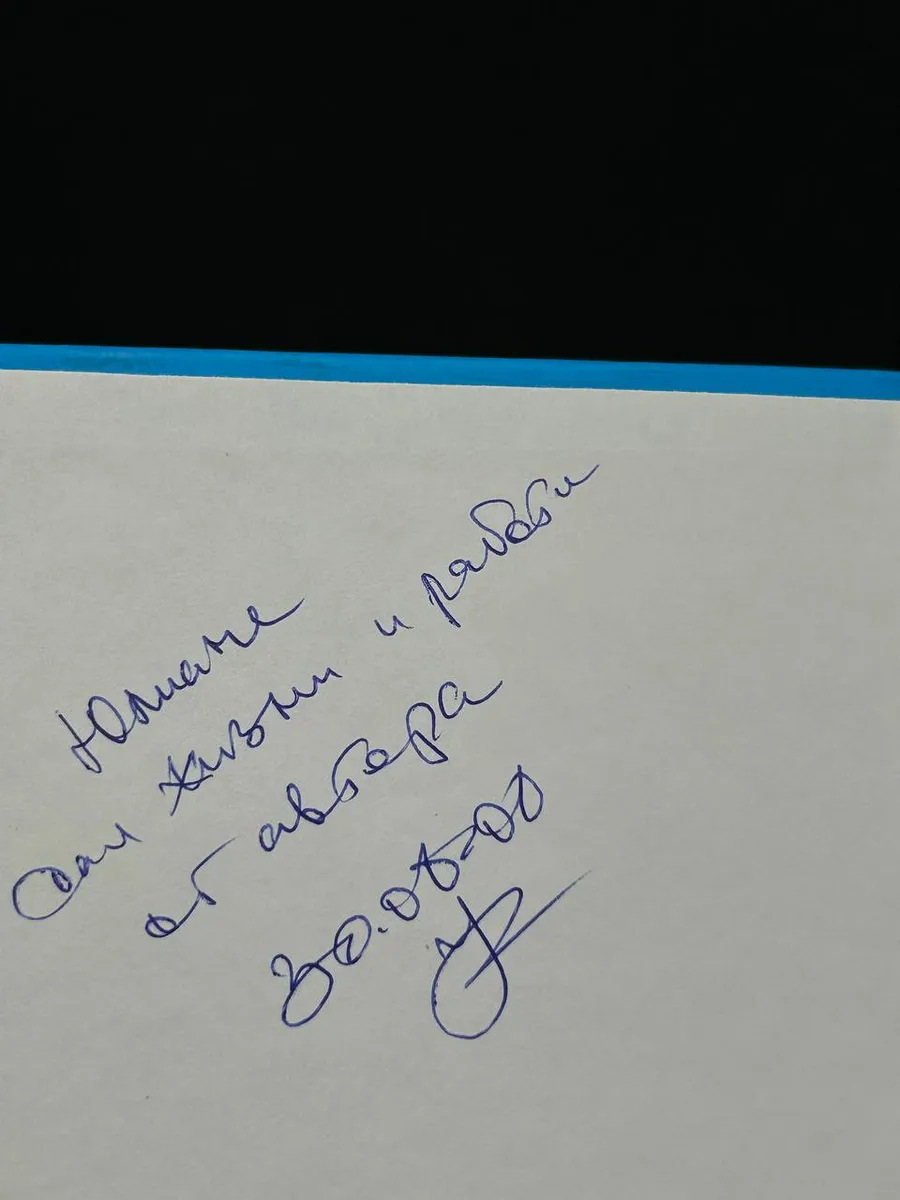 Юлиане
сил жизни и работы
от автора
30.05-00